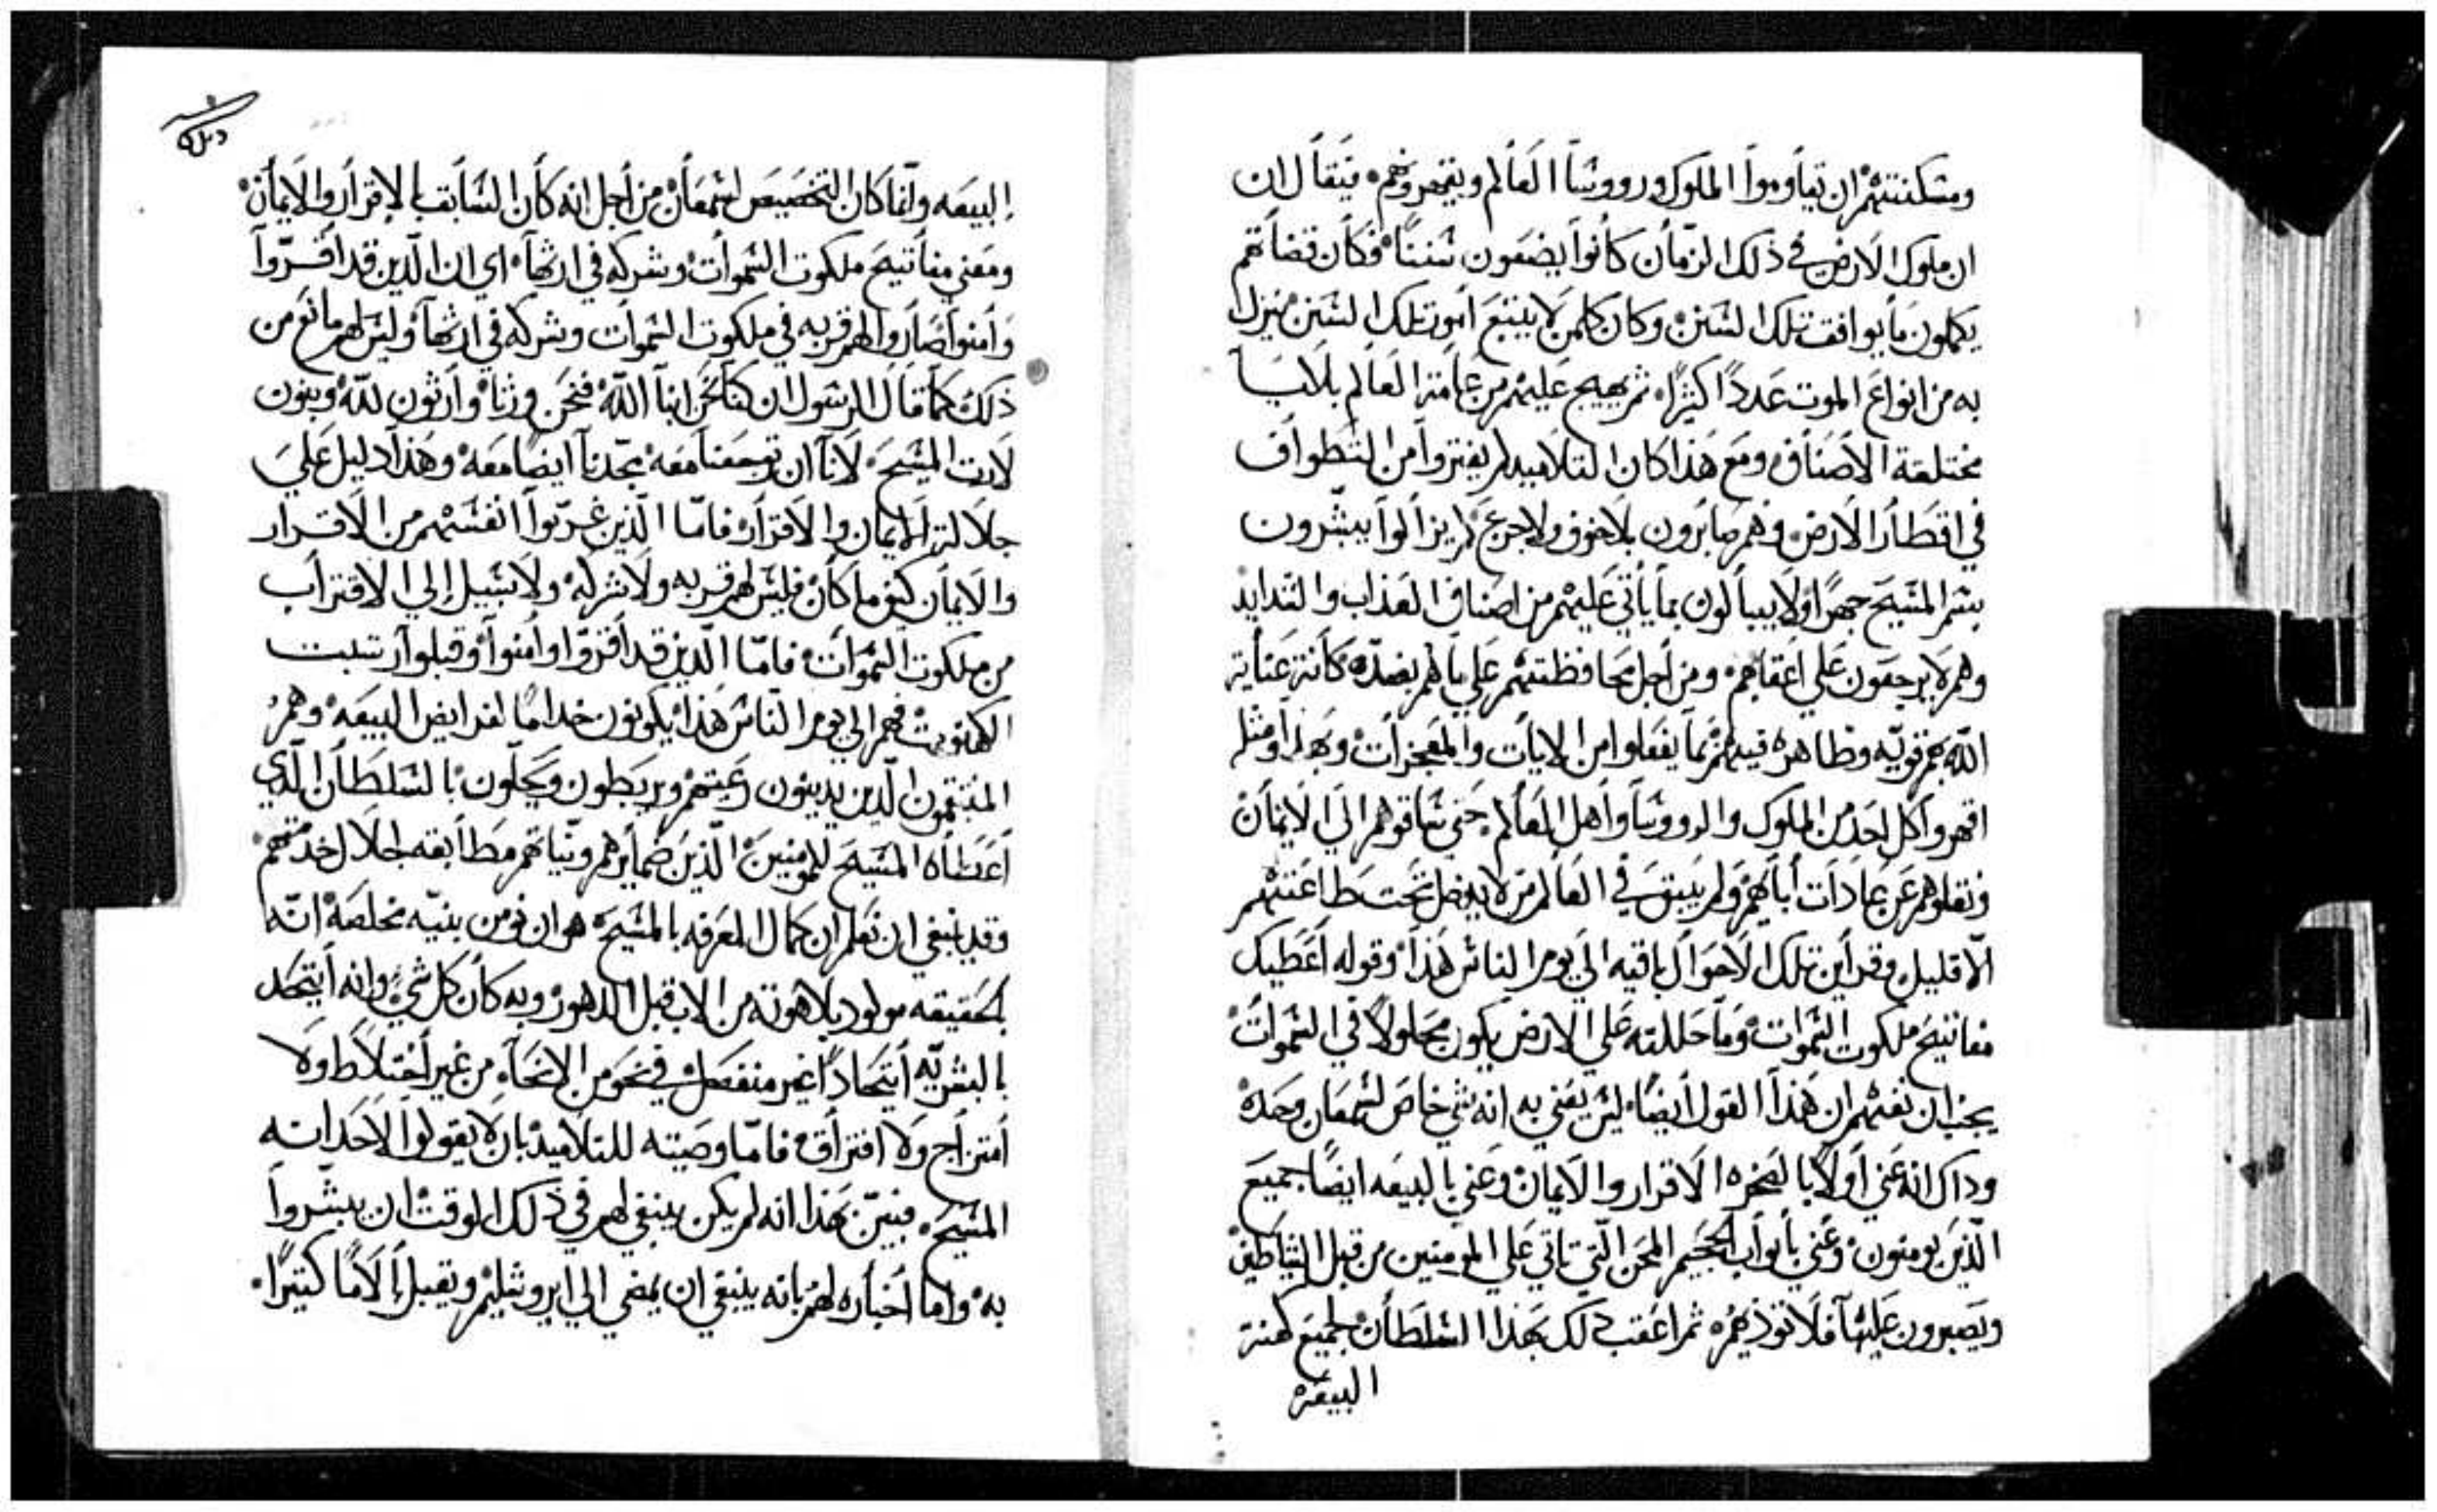 ومسكنتهم ان يقاوموا الملوك وروؤسا العالم ويقهروهم فيقال ان
ان ملوك الارض في ذلك الزمان كانوا يضعون سننا فكان قضاتهم
يكملون ما يوافق تلك السنن وكان كلمن لا يتبع امور تلك السنن ينزل
به من انواع الموت عددا كثيرا ثم يهيج عليهم من عامة العالم بلايا
مختلفة الاصناف ومع هذا كان التلاميد لم يفتروا من التطواف
في اقطار الارض وهم صابرون بلا خوف ولا جزع لم يزالوا يبشرون
بشر المسيح جهرا ولا يبالون بما ياتي عليهم من اصناف العذاب والشدايد
وهم لا يرجعون علي اعقابهم ومن اجل محافظتهم علي ما هم بصدده كانة عناية
الله بهم قويه وظاهره فيهم بما يفعلوا من الايات والمعجزات وبهذا ومثله
اقهروا كل احد من الملوك والروؤسا واهل العالم حتي ساقوهم الي الايمان
ونقلوهم عن عادات اباهم ولم يبق في العالم من لا يدخل تحت طاعتهم
الا قليل وقراين تلك الاحوال باقيه الي يومر الناس هذا وقوله اعطيك
مفاتيح ملكوت السموات وما حللته علي الارض يكون محلولا في السموات
يجب ان نفهم ان هذا القول ايضا ليس يعني به انه شي خاص لشمعان وحده
وداك انه عني اولا بالصخره الاقرار والايمان وعني بالبيعه ايضا جميع
الذين يومنون وعني بابواب الجحيم المحن التي تاتي علي المومنين من قبل الشياطين
ويصبرون عليها فلا توذيهم ثم اعقب ذلك بهذا السلطان لجميع كهنة
البيعه
البيعه وانما كان التخصيص لشمعان من اجل انه كان السابق بالاقرار والايمان
ومعني مفاتيح ملكوت السموات وشركه في ارثها اي ان الذين قد اقروا
وامنوا صار لهم قربه في ملكوت السموات وشركه في ارثها وليس لهم مانع من
ذلك كما قال الرسول ان كنا نحن ابنا الله فنحن ورثاه وارثون لله وبنون
لارت المسيح لانا ان توجعنا معه تمجدنا ايضا معه وهذا دليل علي
جلالة الايمان والاقرار فاما الذين غربوا انفسهم من الاقرار
والايمان كيف ما كان فليس لهم قربه ولا شركه ولا سبيل الي الاقتراب
من ملكوت السموات فاما الذين قد اقروا وامنوا وقبلوا رتبت
الكهنوت فهم الي يومر الناس هذا يكونون خداما لفرايض البيعه وهم
المنتقمون الذين يدينون رعيتهم ويربطون ويحلون بالسلطان الذي
اعطاه المسيح للمومنين الذين ضمايرهم ونياتهم مطابقه لجلال خدمتهم
وقد ينبغي ان نعلم ان كمال المعرفه بالمسيح هو ان نومن بنيه مخلصه انه
بالحقيقه مولود بلاهوته من الاب قبل الدهور وبه كان كل شي وانه اتحد
بالبشريه اتحادا غير منفصل في نحو من الانحاء من غير اختلاط ولا
امتزاج ولا افتراق فاما وصيته للتلاميد بان لا يقولوا لاحد انه
المسيح فبين بهذا انه لم يكن ينبغي لهم في ذلك الوقت ان يبشروا
به واما اخباره لهم بانه ينبغي ان يمضي الي ايروشليم ويقبل الاما كثيرا